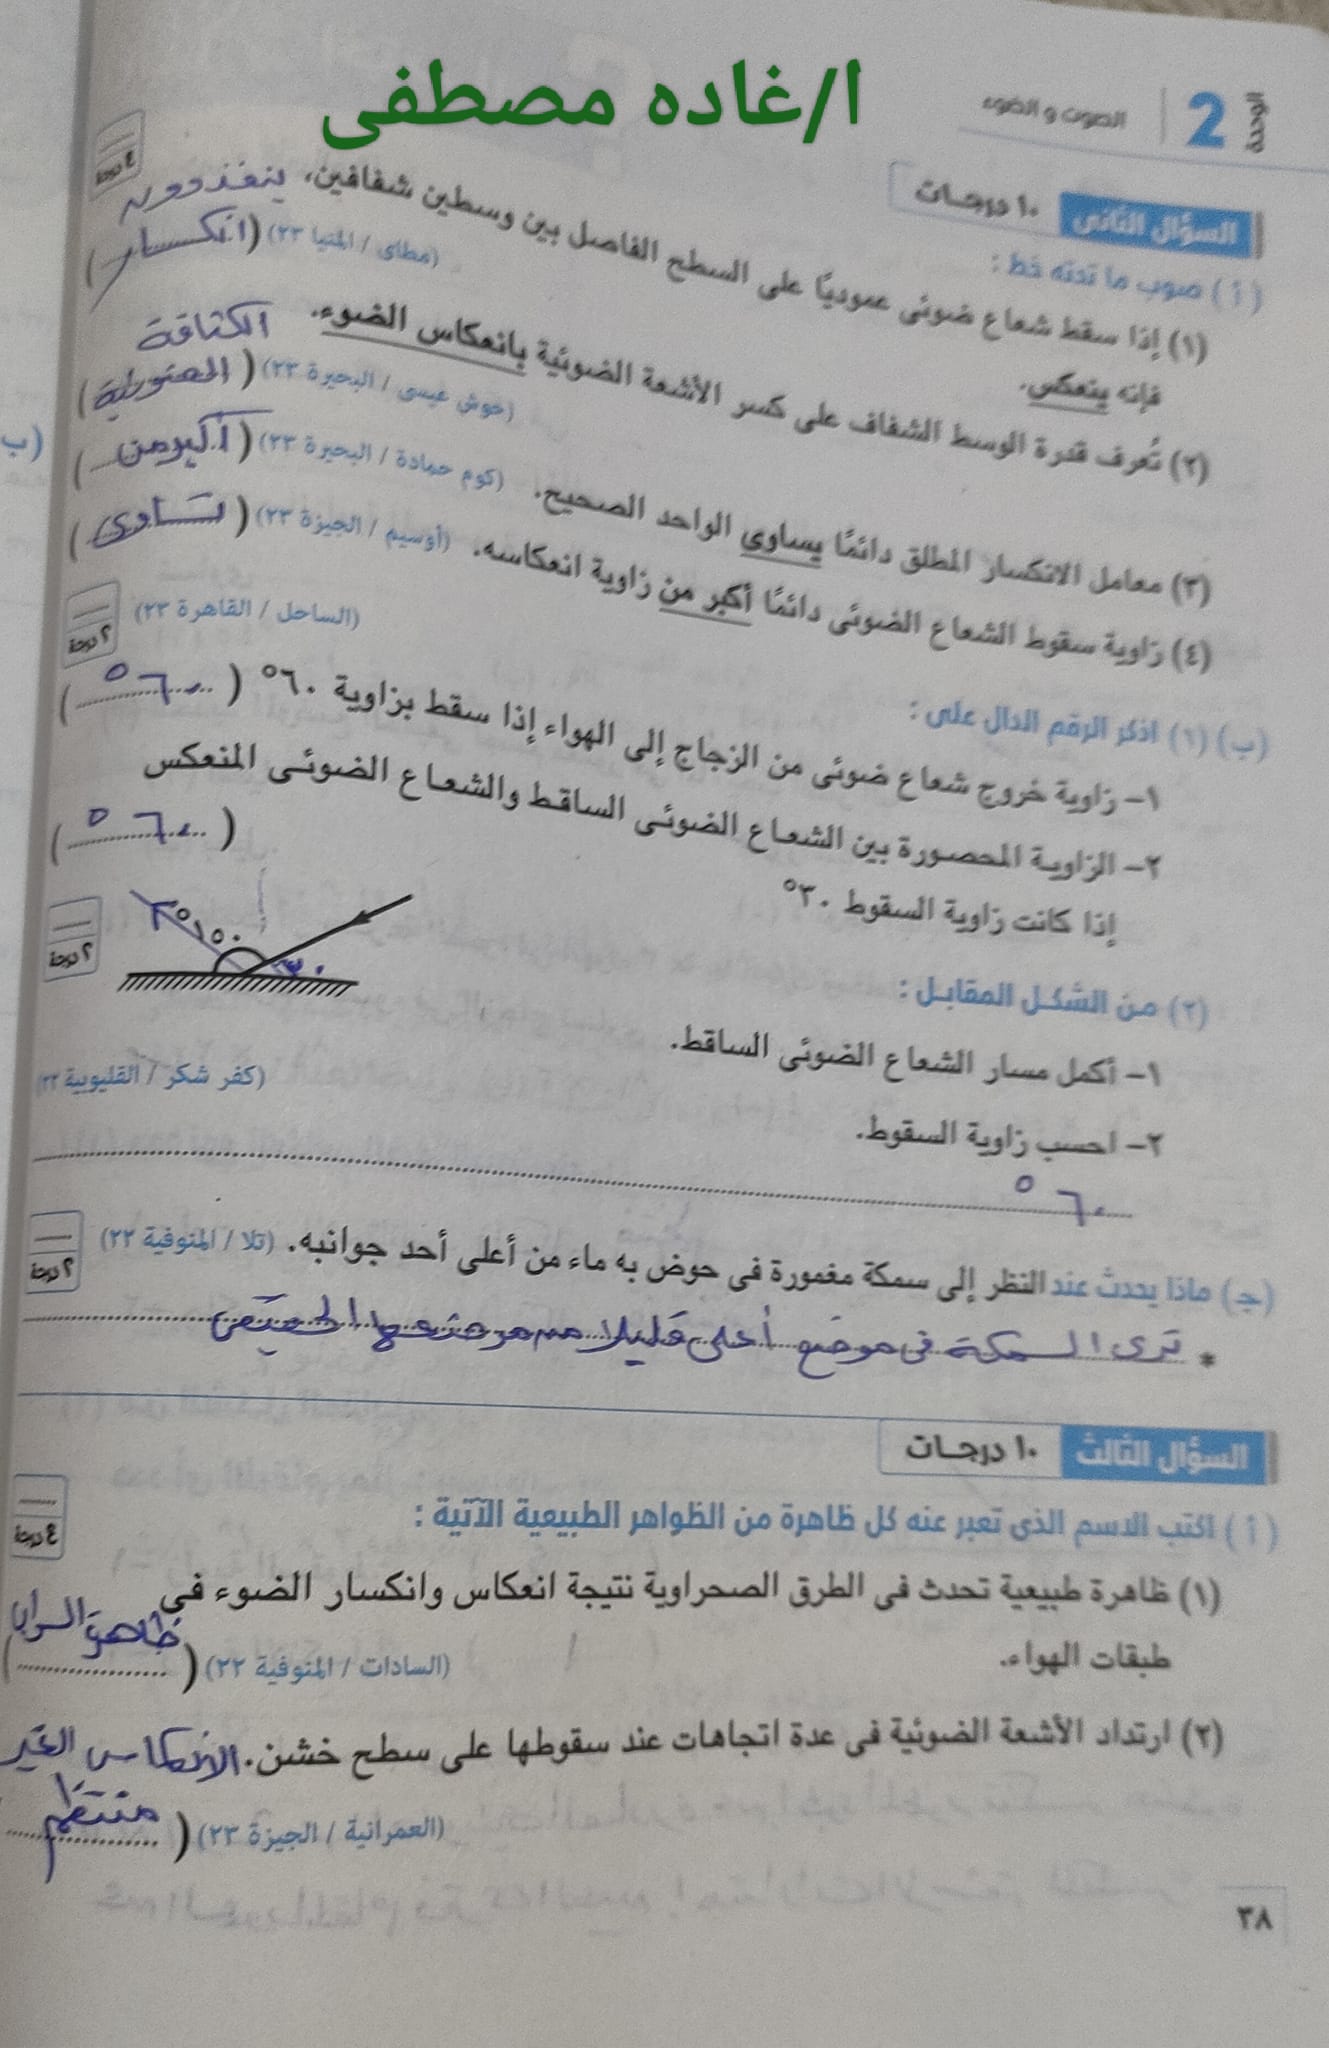 ا/غاده مصطفى
الوحدة 2 الصوت و الضوء
السؤال الثانى ١٠ درجات
٤ درجة
( أ ) صوب ما تحته خط :
(١) إذا سقط شعاع ضوئى عموديًا على السطح الفاصل بين وسطين شفافين، ينفذ دون
فإنه ينعكس. (مطاى / المنيا ٢٣) (انكسار)
(٢) تُعرف قدرة الوسط الشفاف على كسر الأشعة الضوئية بانعكاس الضوء. الكثافة
(حوش عيسى / البحيرة ٢٣) (الضوئية)
(٣) معامل الانكسار المطلق دائمًا يساوى الواحد الصحيح. (كوم حمادة / البحيرة ٢٣) (أكبر من)
(٤) زاوية سقوط الشعاع الضوئى دائمًا أكبر من زاوية انعكاسه. (أوسيم / الجيزة ٢٣) (تساوى)
(ب) (١) اذكر الرقم الدال على : (الساحل / القاهرة ٢٣)
٢ درجة
١- زاوية خروج شعاع ضوئى من الزجاج إلى الهواء إذا سقط بزاوية ٦٠° (٦٠°)
٢- الزاوية المحصورة بين الشعاع الضوئى الساقط والشعاع الضوئى المنعكس
إذا كانت زاوية السقوط ٣٠° (٦٠°)
(٢) من الشكل المقابل :
٢ درجة
١٥٠°
٣٠
١- أكمل مسار الشعاع الضوئى الساقط.
٢- احسب زاوية السقوط. (كفر شكر / القليوبية ٢٢)
٦٠°
(جـ) ماذا يحدث عند النظر إلى سمكة مغمورة فى حوض به ماء من أعلى أحد جوانبه. (تلا / المنوفية ٢٢)
٢ درجة
* ترى السمكة فى موضع أعلى قليلا من موضعها الحقيقى
السؤال الثالث ١٠ درجات
٤ درجة
( أ ) اكتب الاسم الذى تعبر عنه كل ظاهرة من الظواهر الطبيعية الآتية :
(١) ظاهرة طبيعية تحدث فى الطرق الصحراوية نتيجة انعكاس وانكسار الضوء فى
طبقات الهواء. (السادات / المنوفية ٢٢) (ظاهرة السراب
(٢) ارتداد الأشعة الضوئية فى عدة اتجاهات عند سقوطها على سطح خشن. الانعكاس الغير
(العمرانية / الجيزة ٢٣) (منتظم
٣٨
(ب